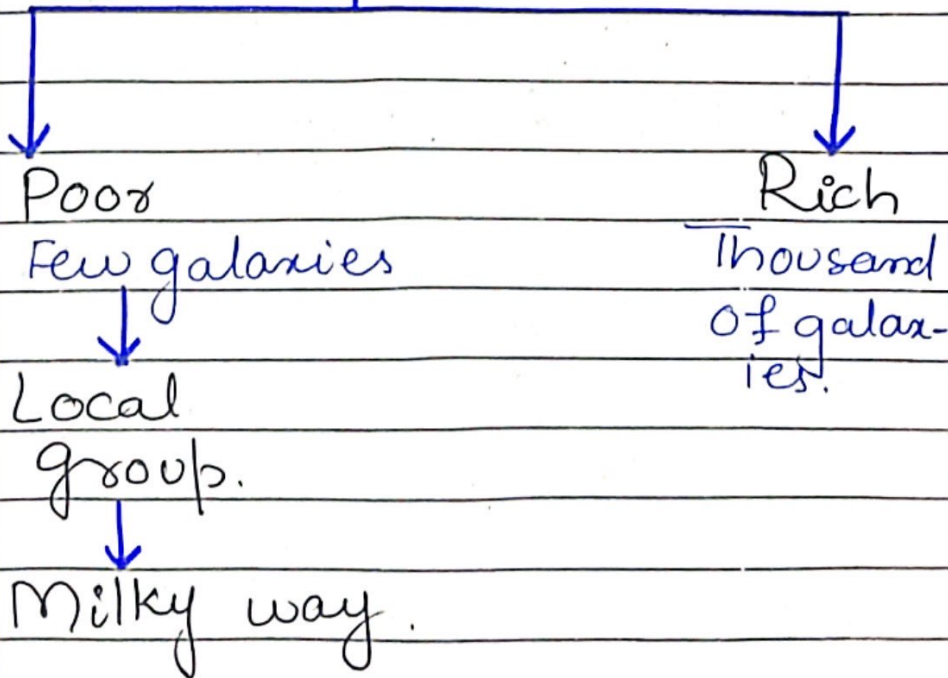 Poor
Few galaxies
Local
group.
Milky way.
Rich
Thousand
of galax-
ies.